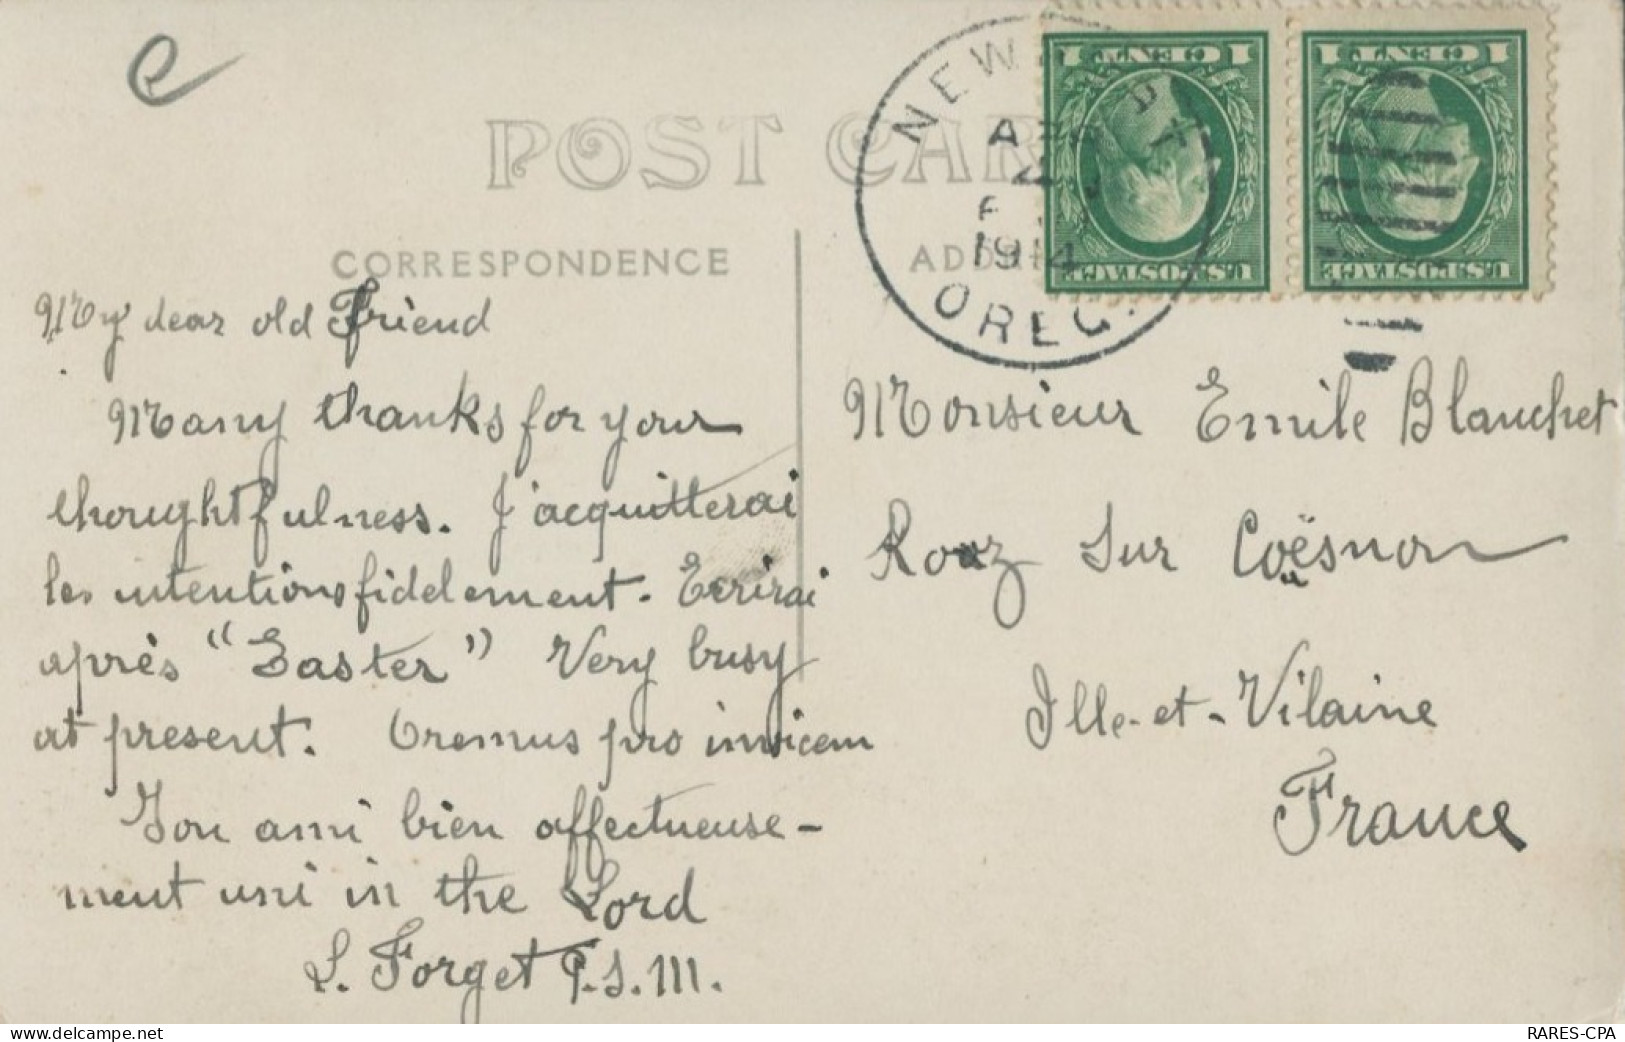 e
POST CAR
NEWPORT
APR
4
P
1914
OREG.
1 CENT 1
U.S. POSTAGE
1 CENT 1
U.S. POSTAGE
CORRESPONDENCE
ADDR
My dear old Friend
Many thanks for your
thoughtfulness. J'acquitterai
les intentions fidelement. Ecrirai
après "Easter" Very busy
at present. Oremus pro invicem
Ton ami bien affectueuse-
ment uni in the Lord
L. Forget P.S.M.
Monsieur Emile Blanchet
Rouz sur Couësnon
Ille-et-Vilaine
France
RARES-CPA